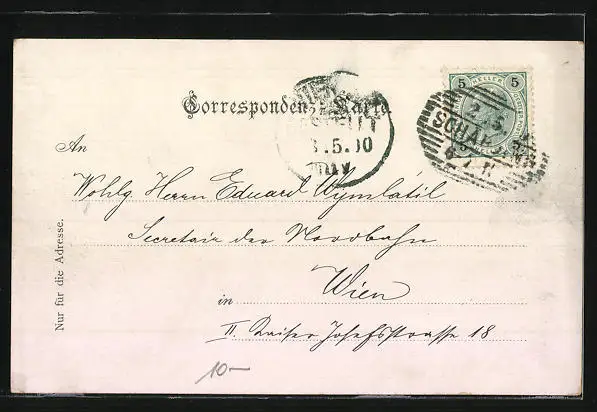 Correspondenz-Karte
5 HELLER 5
2 5
SCHAL
.5.00
An
Wohlg Herrn Eduard Wymlátil
Secretair der Nordbahn
in Wien
II Kaiser Josefsstrasse 18
Nur für die Adresse.
10—